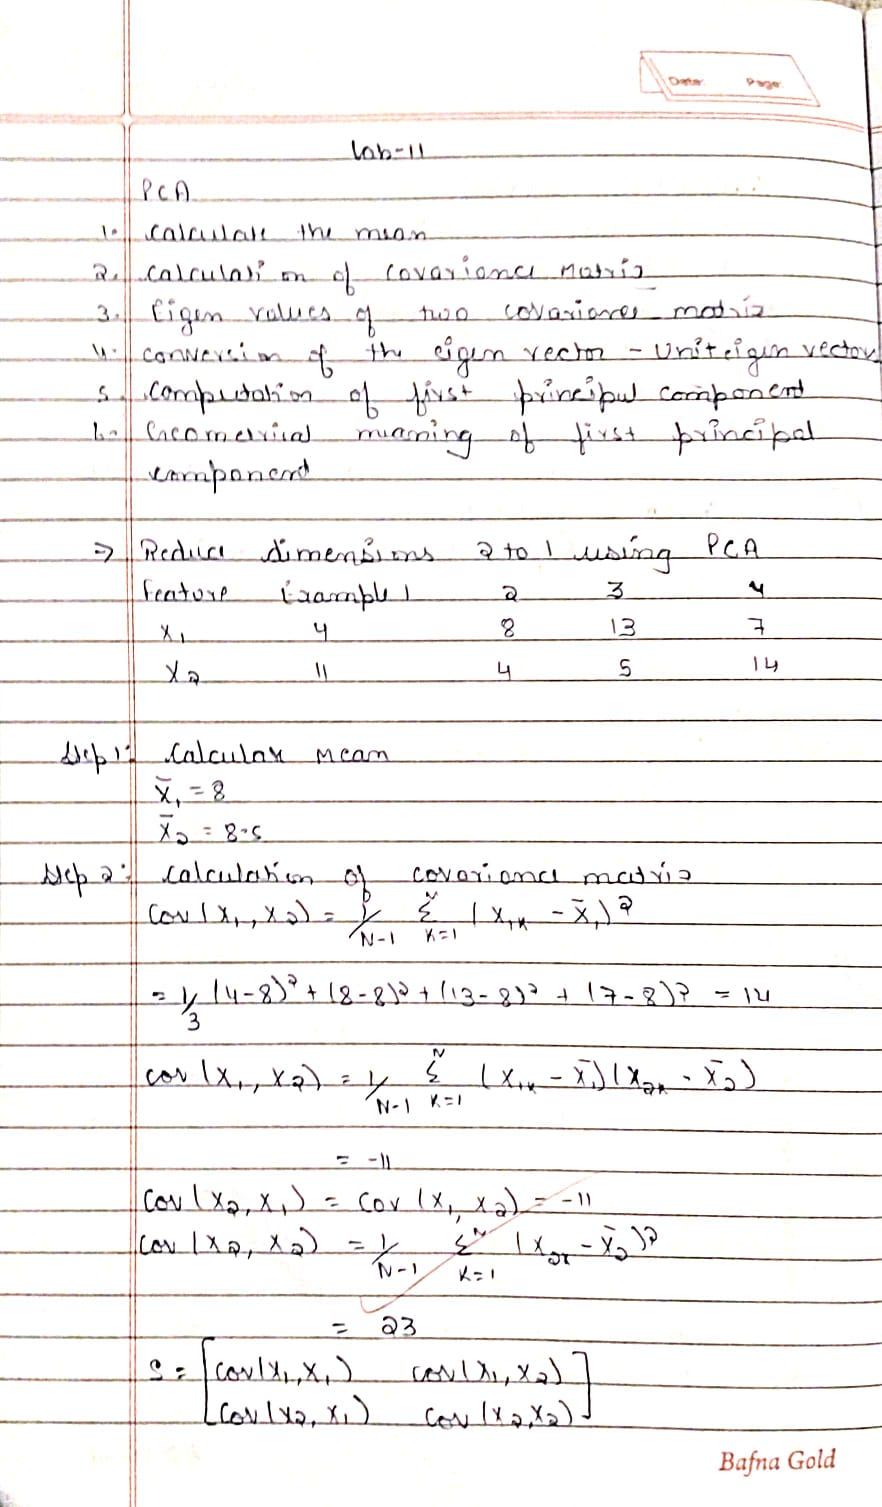 Date: Page:
Lab-11
PCA
1. Calculate the mean
2. Calculation of Covariance Matrix
3. Eigen values of two covariances matrix
4. Conversion of the eigen vector - Unit eigen vector
5. Computation of first principal component
6. Geometrical meaning of first principal
component
=> Reduce dimensions 2 to 1 using PCA
Feature Example 1 2 3 4
X₁ 4 8 13 7
X₂ 11 4 5 14
Step 1: Calculate mean
X̄₁ = 8
X̄₂ = 8.5
Step 2: Calculation of covariance matrix
Cov (X₁, X₂) = 1/N-1 Σ_{K=1}^{N} (X₁ₖ - X̄₁)²
= 1/3 (4-8)² + (8-8)² + (13-8)² + (7-8)² = 14
Cov (X₁, X₂) = 1/N-1 Σ_{K=1}^{N} (X₁ₖ - X̄₁)(X₂ₖ - X̄₂)
= -11
Cov (X₂, X₁) = Cov (X₁, X₂) = -11
Cov (X₂, X₂) = 1/N-1 Σ_{K=1}^{N} (X₂ₖ - X̄₂)²
= 23
S = [Cov(X₁, X₁) Cov(X₁, X₂)]
[Cov(X₂, X₁) Cov(X₂, X₂)]
Bafna Gold